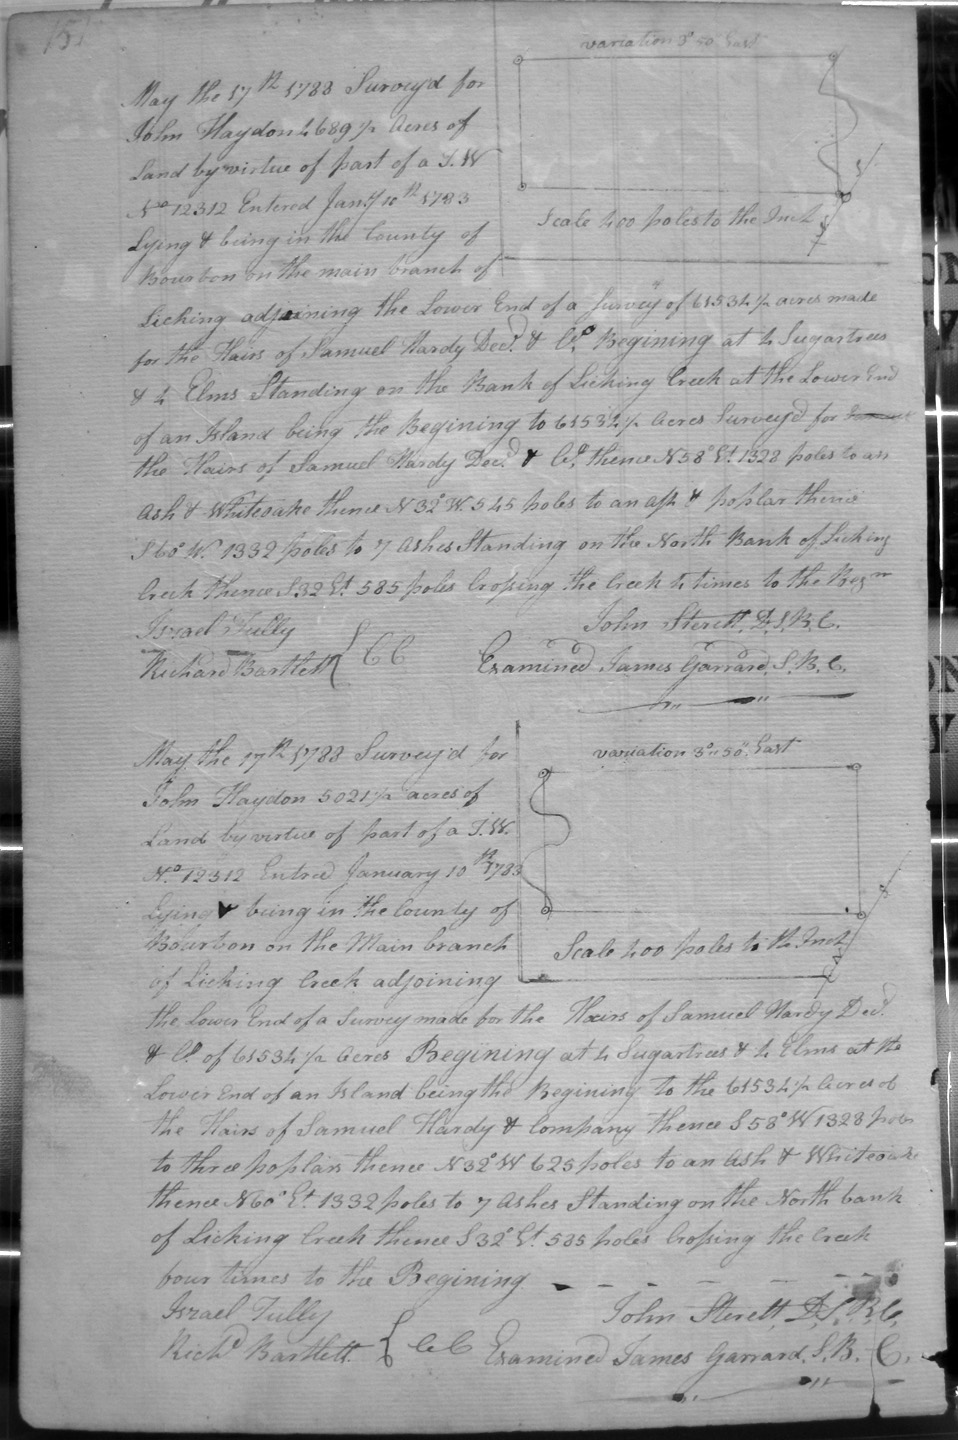 151
variation 3° 50" East
May the 17th 1788 Survey'd for
John Haydon 4689 1/2 Acres of
Land by virtue of part of a T. W
No 12312 Entered Jany 10th 1783
Lying & being in the County of
Bourbon on the main branch of
Scale 400 poles to the Inch
Licking adjoining the Lower End of a Survey of 61534 1/2 acres made
for the Hairs of Samuel Hardy Decd. & Co. Begining at 4 Sugartrees
& 4 Elms Standing on the Bank of Licking Creek at the Lower End
of an Island being the Begining to 61534 1/2 Acres Survey'd for
the Hairs of Samuel Hardy Decd. & Co. thence N58° Et. 1328 poles to an
Ash & Whiteoake thence N32° W. 545 poles to an Ash & poplar thence
S60° W. 1332 poles to 7 Ashes Standing on the North Bank of Licking
Creek thence S32 Et. 585 poles Crossing the Creek 4 times to the Begn
Israel Tully
Richard Bartlett } CC
John Sterett, D.S.B.C.
Examined James Garrard, S.B.C.
variation 3° 50" East
May the 17th 1788 Survey'd for
John Haydon 5021 1/2 acres of
Land by virtue of part of a T.W.
No. 12312 Entred January 10th 1783
Lying & being in the County of
Bourbon on the Main branch
of Licking Creek adjoining
Scale 400 poles to the Inch
the Lower End of a Survey made for the Hairs of Samuel Hardy Decd.
& Co. of 61534 1/2 Acres Begining at 4 Sugartrees & 4 Elms at the
Lower End of an Island being the Begining to the 61534 1/2 Acres of
the Hairs of Samuel Hardy & Company thence S58° W 1328 poles
to three poplars thence N32° W 625 poles to an Ash & Whiteoake
thence N60° Et. 1332 poles to 7 Ashes Standing on the North bank
of Licking Creek thence S32° Et. 585 poles Crossing the Creek
four times to the Begining
Israel Tully
Richd Bartlett } CC
John Sterett, D.S.B.C.
Examined James Garrard, S.B.C.